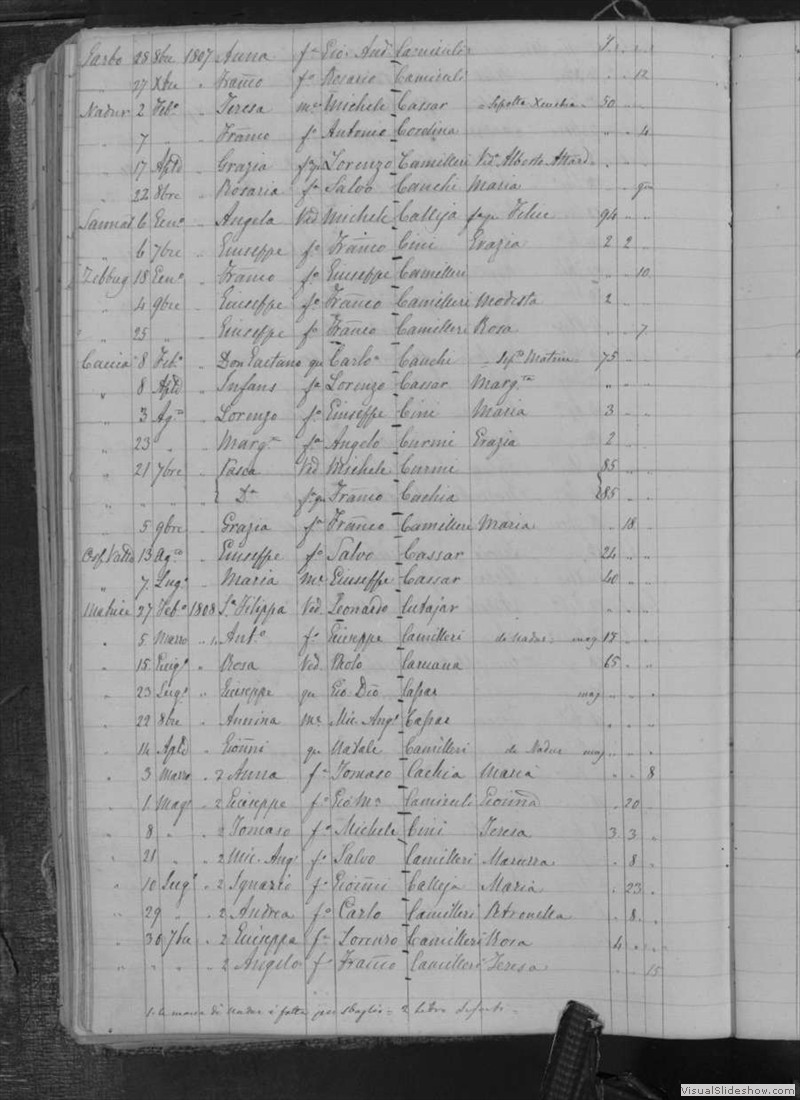 Garbo 28 8bre 1807 Anna fa Gio. And. Camiculi
" 27 Xbre " Franco fo Rosario Camiculi " " 12
Nadur 2 Febo " Teresa me Michele Cassar Sepolta 50 " "
" 7 " " Franco fo Antonio Cordina " " 4
" 17 Aple " Grazia Lorenzo Camilleri Vda Alberto Attard
" 22 8bre " Rosaria fa Salvo Cauchi Maria
Sannat 6 Geno " Angela Ved Michele Calleja Felice 94 " "
" 6 7bre " Giuseppe fo Franco Cini Grazia 2 2 "
Zebbug 18 Geno " Franco fo Giuseppe Camilleri " " 10
" 4 9bre " Giuseppe fo Franco Camilleri Modesta 2 " "
" 25 " " Giuseppe fo Franco Camilleri Rosa " " 7
Caccia 8 Febo " Don Gaetano qu Carlo Cauchi Sepo Matrice 75 " "
" 8 Aple " Infans fa Lorenzo Cassar Margta " " "
" 3 Ago " Lorenzo fo Giuseppe Cini Maria 3 " "
" 23 " " Margta fa Angelo Curmi Grazia 2 " "
" 21 7bre " Pasca Ved Michele Curmi 85 " "
" " " " Da Franco Cachia 85 " "
" 5 9bre " Grazia fa Franco Camilleri Maria " 18 "
13 Ago " Giuseppe fo Salvo Cassar 24 " "
" 7 Lugo " Maria me Giuseppe Cassar 40 " "
Matrice 27 Febo 1808 Sa Filippa Ved Leonardo Cutajar " " "
" 5 Marzo " 1 Anto fo Giuseppe Camilleri de Nadur mag 15 " "
" 15 Giugo " Rosa Ved Paolo Caruana 65 " "
" 23 Lugo " Giuseppe qu Gio Dio Capar mag " " "
" 22 8bre " Annina me Mic. Ango Capar " " "
" 14 Aple " Gionni qu Natale Camilleri de Nadur mag " " "
" 3 Marzo " 2 Anna fa Tomaso Cachia Maria " " 8
" 1 Mago 2 Giuseppe fo Giо Mа Camiculi Gionna " 20 "
" 8 " " 2 Tomaso fo Michele Cini Teresa 3 3 "
" 21 " " 2 Mic. Ango fo Salvo Camilleri Maruzza " 8 "
" 10 Lugo " 2 Ignazio fo Gionni Calleja Maria " 23 "
" 29 " " 2 Andrea fo Carlo Camilleri Petronella " 8 "
" 30 7bre " 2 Giuseppa fa Lorenzo Camilleri Rosa 4 " "
" " " " 2 Angelo fo Franco Camilleri Teresa " " 15
1. di Nadur è fatta per sbaglio = 2 Libro
VisualSlideshow.com